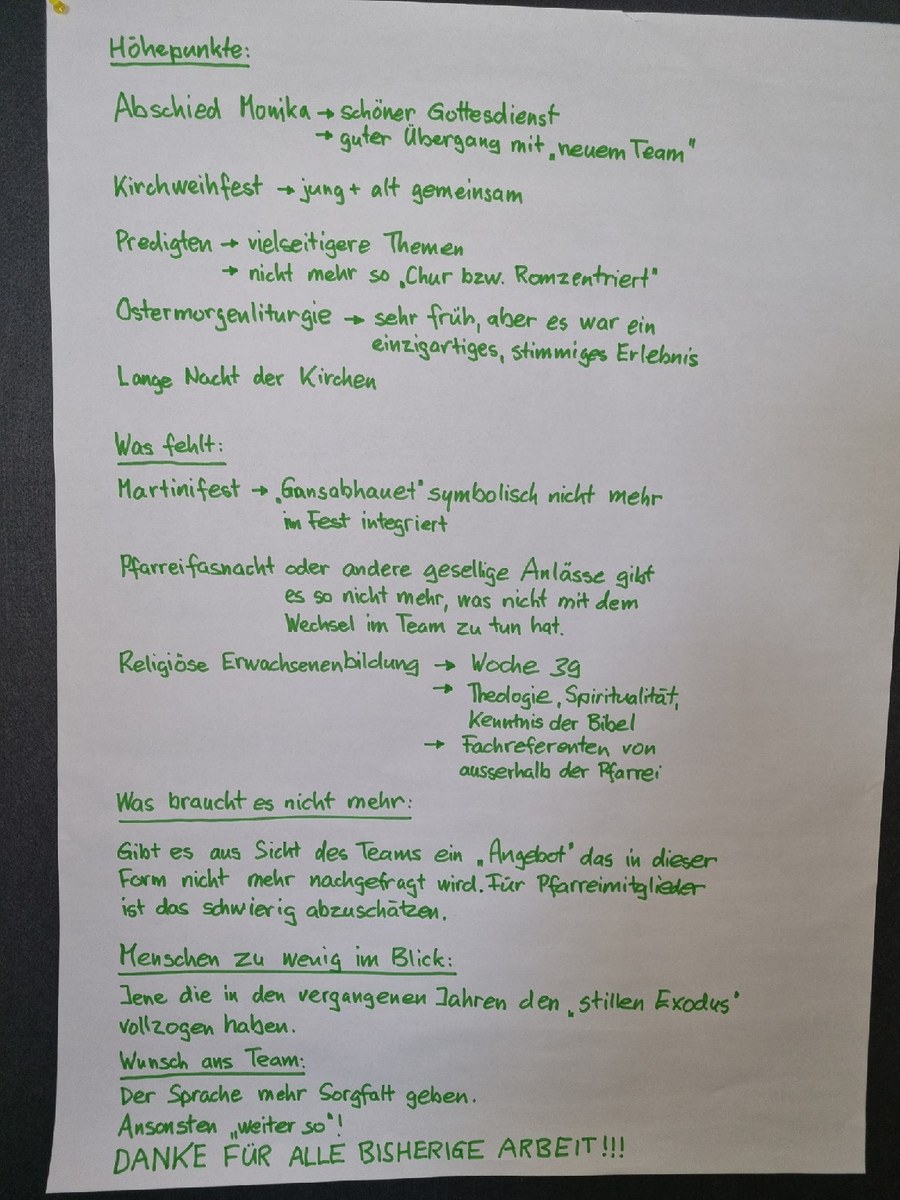 Höhepunkte:
Abschied Monika → schöner Gottesdienst
→ guter Übergang mit „neuem Team"
Kirchweihfest → jung + alt gemeinsam
Predigten → vielseitigere Themen
→ nicht mehr so „Chur bzw. Romzentriert"
Ostermorgenliturgie → sehr früh, aber es war ein
einzigartiges, stimmiges Erlebnis
Lange Nacht der Kirchen
Was fehlt:
Martinifest → „Gansabhauet" symbolisch nicht mehr
im Fest integriert
Pfarreifasnacht oder andere gesellige Anlässe gibt
es so nicht mehr, was nicht mit dem
Wechsel im Team zu tun hat.
Religiöse Erwachsenenbildung → Woche 39
→ Theologie, Spiritualität,
Kenntnis der Bibel
→ Fachreferenten von
ausserhalb der Pfarrei
Was braucht es nicht mehr:
Gibt es aus Sicht des Teams ein „Angebot" das in dieser
Form nicht mehr nachgefragt wird. Für Pfarreimitglieder
ist das schwierig abzuschätzen.
Menschen zu wenig im Blick:
Jene die in den vergangenen Jahren den „stillen Exodus"
vollzogen haben.
Wunsch ans Team:
Der Sprache mehr Sorgfalt geben.
Ansonsten „weiter so"!
DANKE FÜR ALLE BISHERIGE ARBEIT!!!